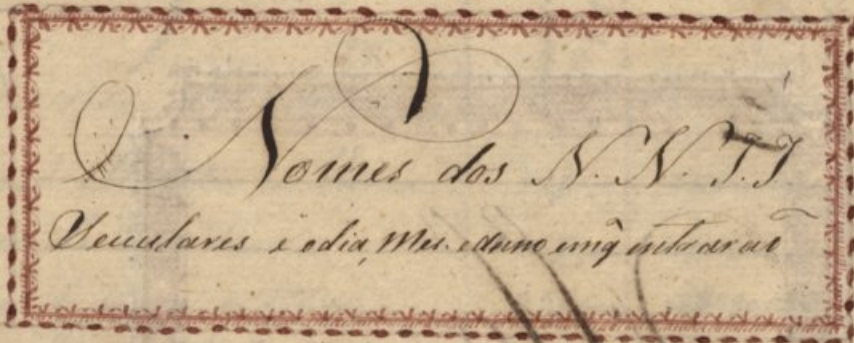 Nomes dos N. N. I. I
Seculares e o dia, Mes. e anno emq̃ entraraõ